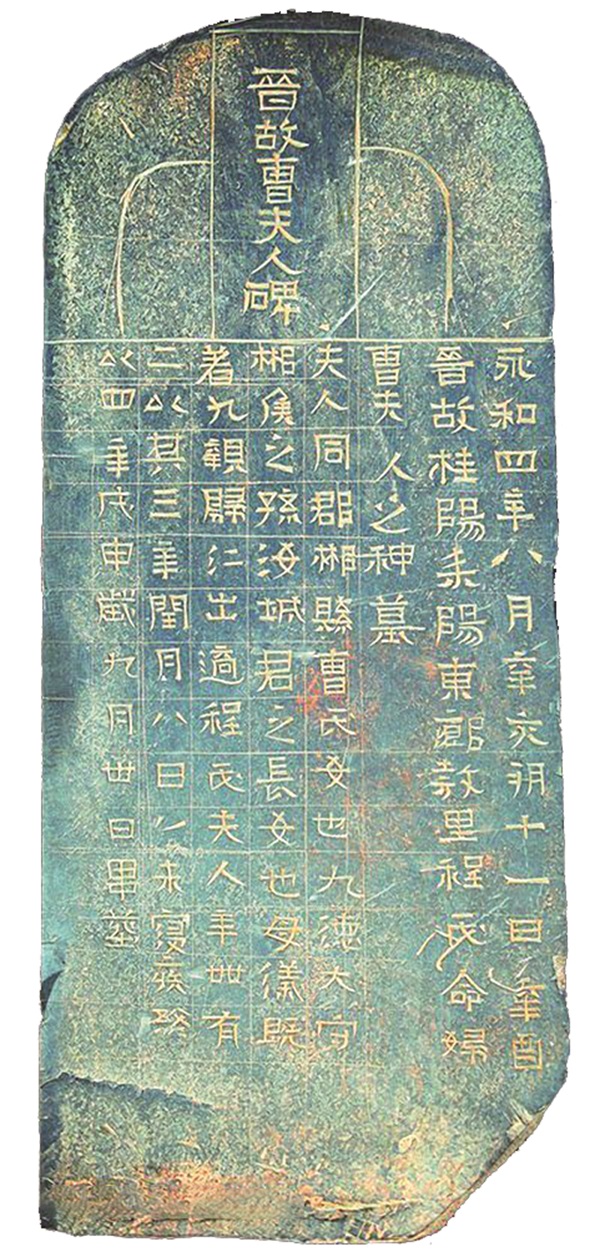 晉故曹夫人碑
永和四年八月辛亥朔十一日辛酉
晉故桂陽耒陽東鄉敦里程氏命婦
曹夫人之神墓
夫人同郡郴縣曹氏女也九德大守
郴侯之孫汝城君之長女也母儀既
著九親歸仁出適程氏夫人年卅有
二以其三年閏月八日乙未寢疾終
以四年戊申歲九月廿日畢葬